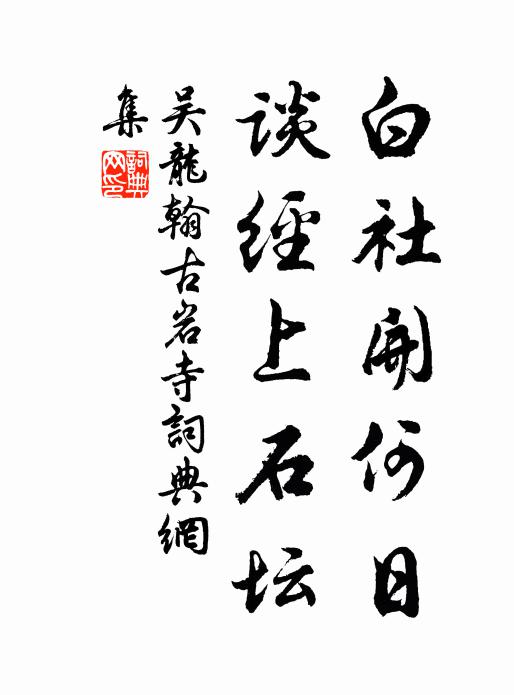 白社開何日
談經上石坛
吴龍翰古岩寺詞典網
集
詞典网印